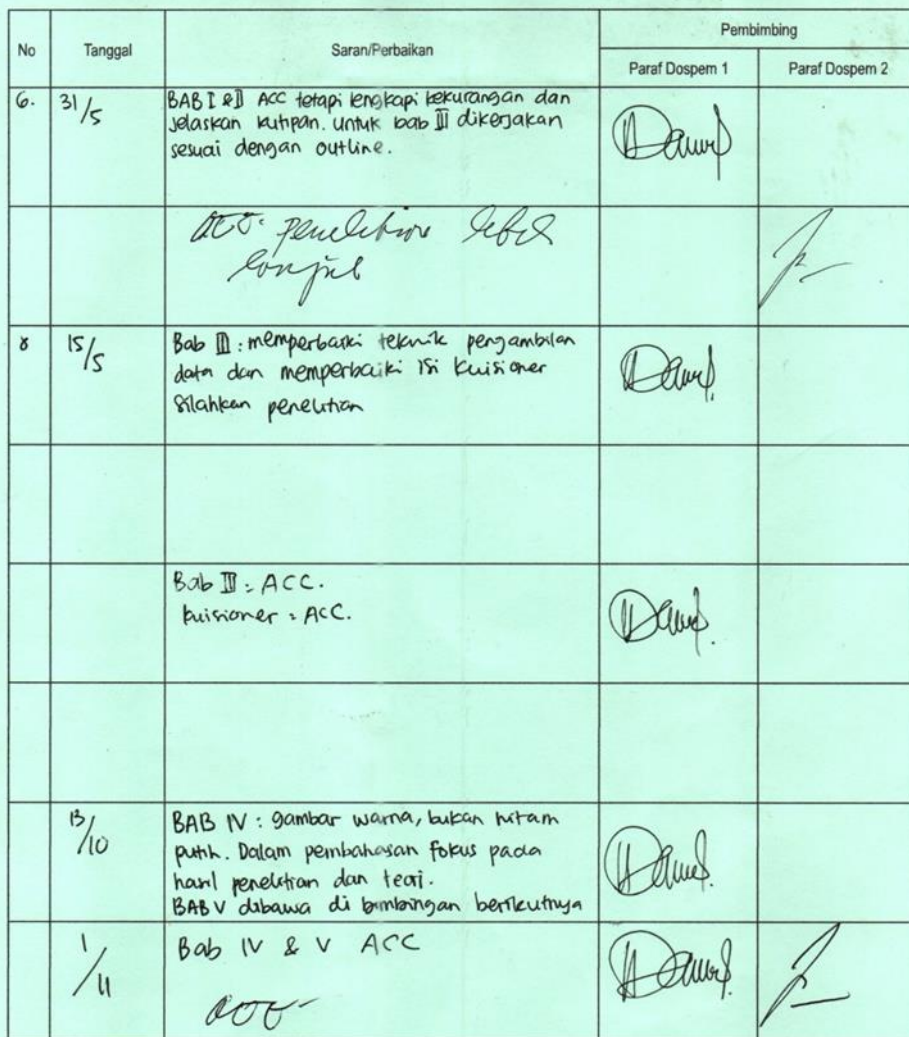 No Tanggal Saran/Perbaikan Pembimbing
Paraf Dospem 1 Paraf Dospem 2
6. 31/5 BAB I & II ACC tetapi lengkapi kekurangan dan
jelaskan kutipan. untuk bab III dikerjakan
sesuai dengan outline.
ACC penelitian lebih
lanjut
8 15/5 Bab III : memperbaiki teknik pengambilan
data dan memperbaiki isi kuisioner
silahkan penelitian
Bab III : ACC.
kuisioner : ACC.
13/10 BAB IV : gambar warna, bukan hitam
putih. Dalam pembahasan fokus pada
hasil penelitian dan teori.
BAB V dibawa di bimbingan berikutnya
1/11 Bab IV & V ACC
ACC